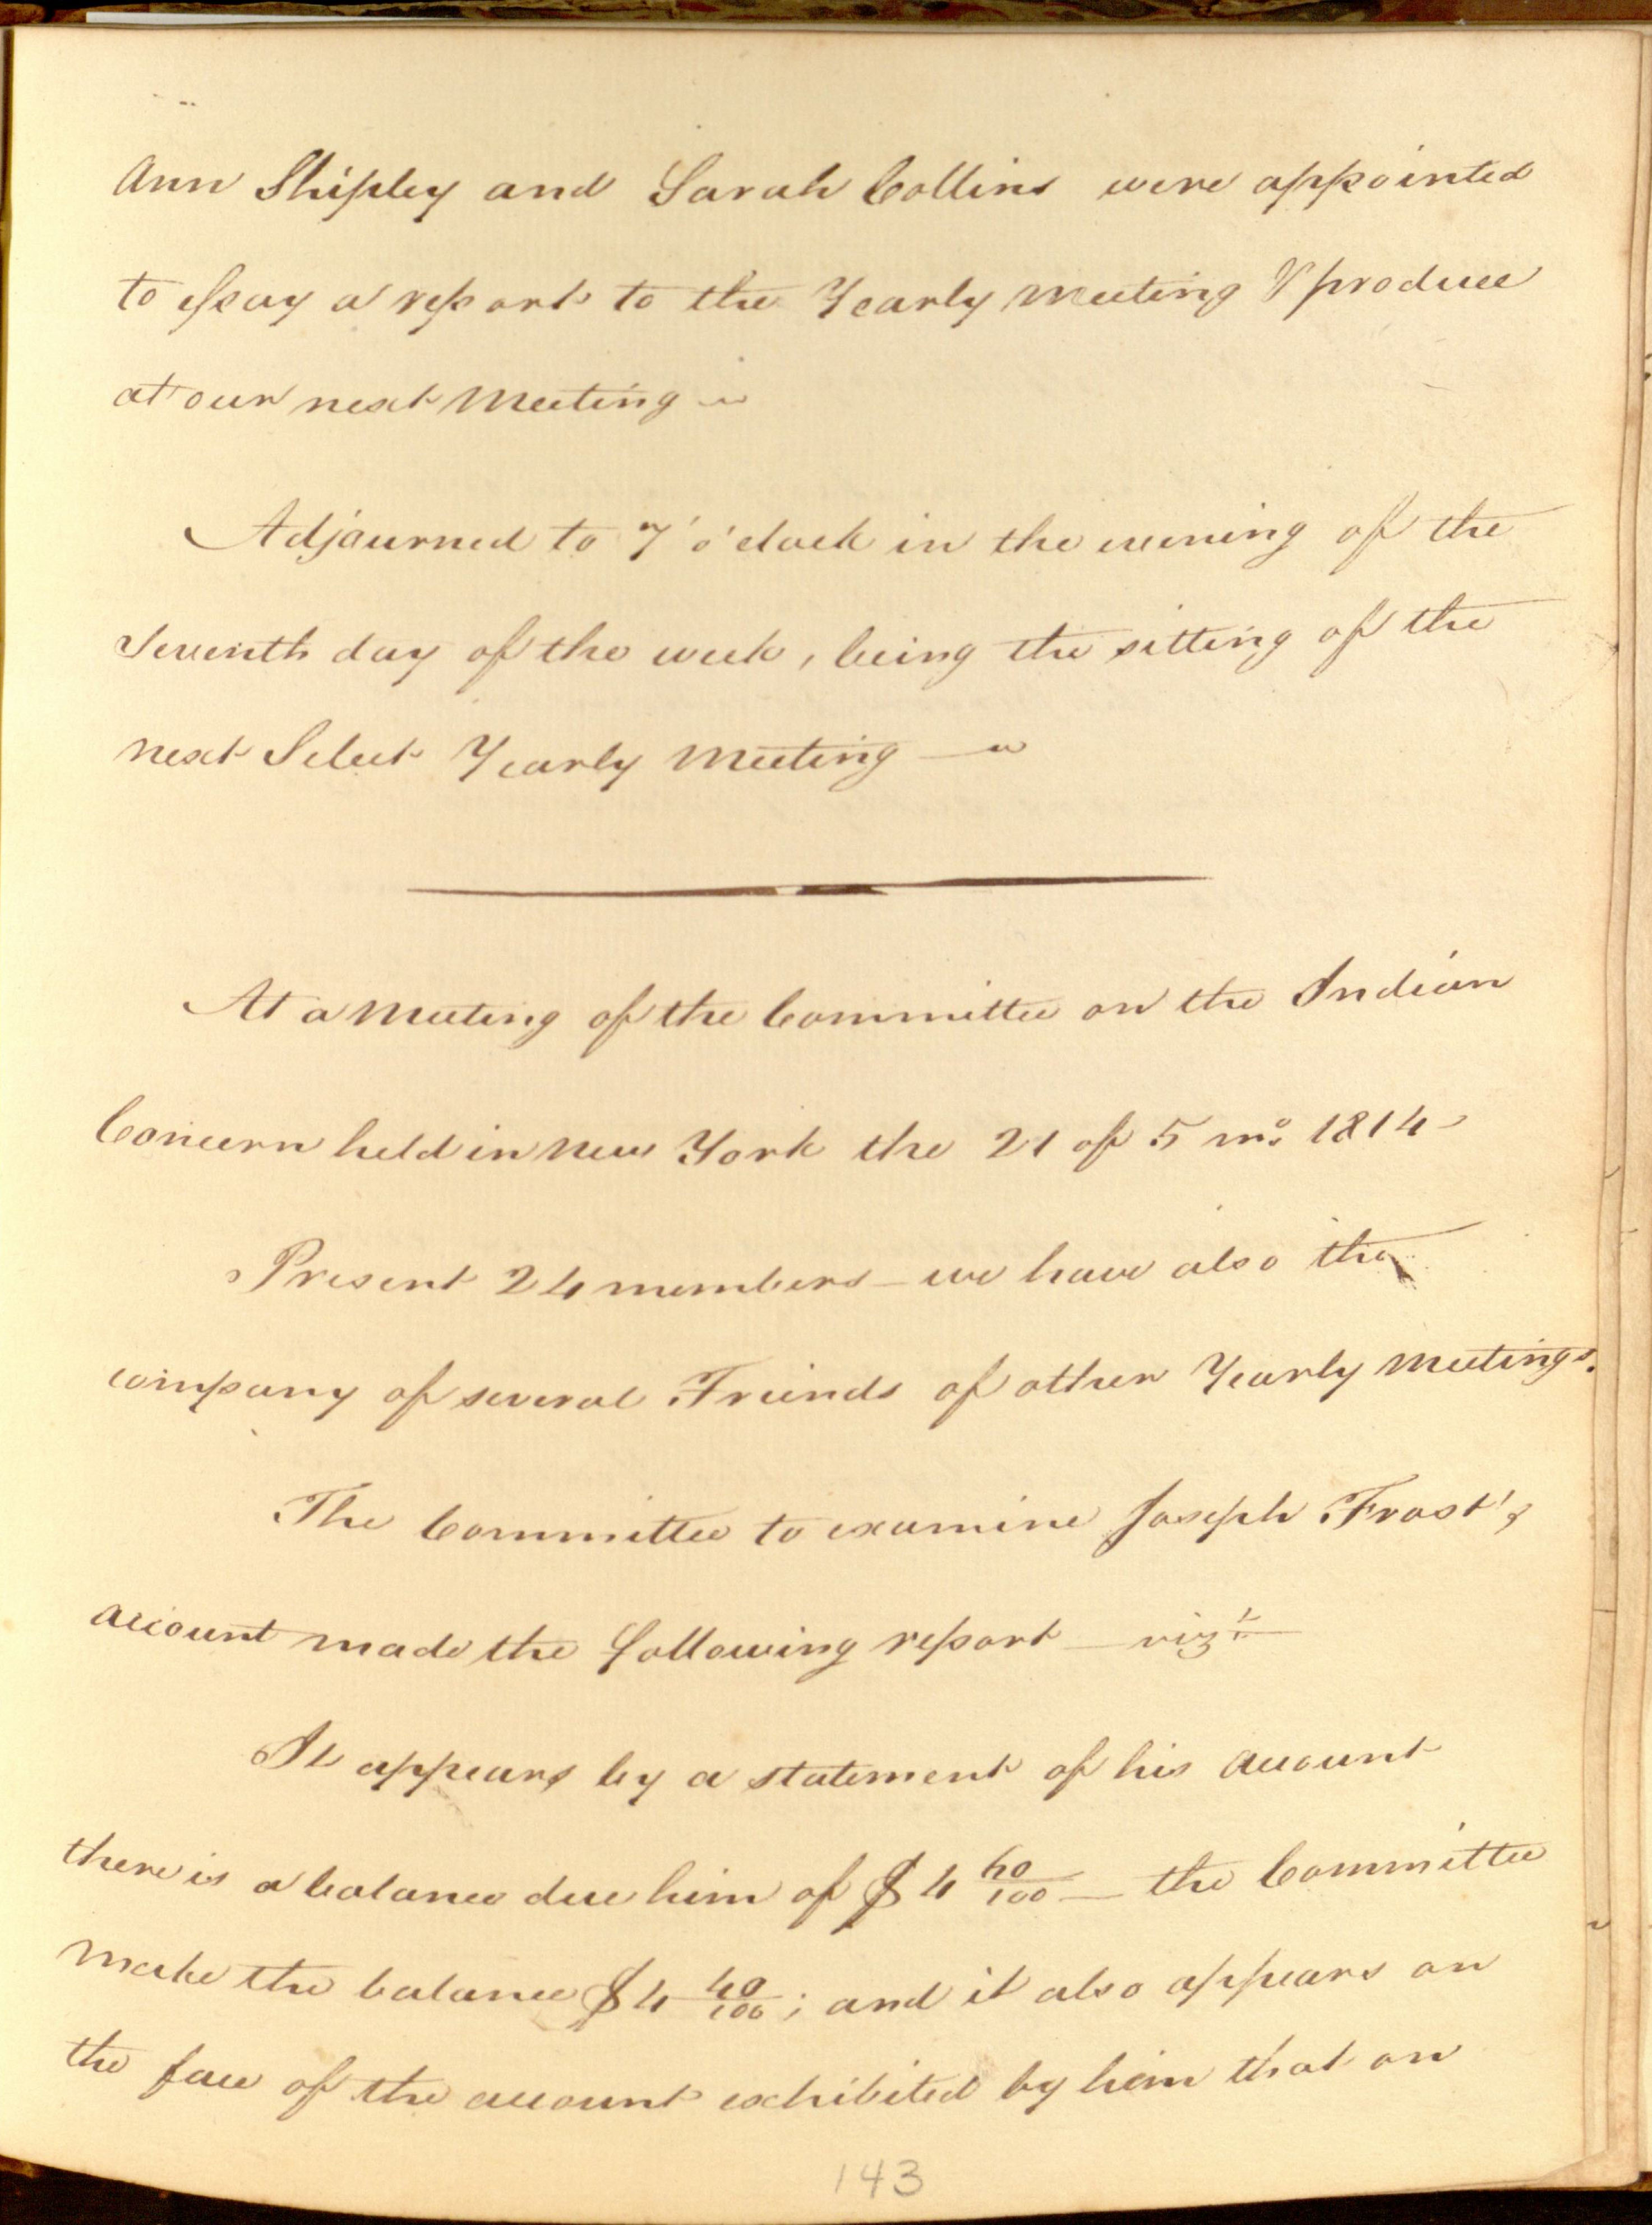 Ann Shipley and Sarah Collins were appointed
to essay a report to the Yearly Meeting & produce
at our next Meeting
Adjourned to 7 o'clock in the evening of the
Seventh day of the week, being the sitting of the
next Select Yearly Meeting
At a Meeting of the Committee on the Indian
Concern held in New York the 21 of 5 mo. 1814
Present 24 members - we have also the
company of several Friends of other Yearly Meetings.
The Committee to examine Joseph Frost's
account made the following report - viz t
It appears by a statement of his account
there is a balance due him of $4 60/100 - the Committee
make the balance $4 40/100; and it also appears on
the face of the account exhibited by him that on
143